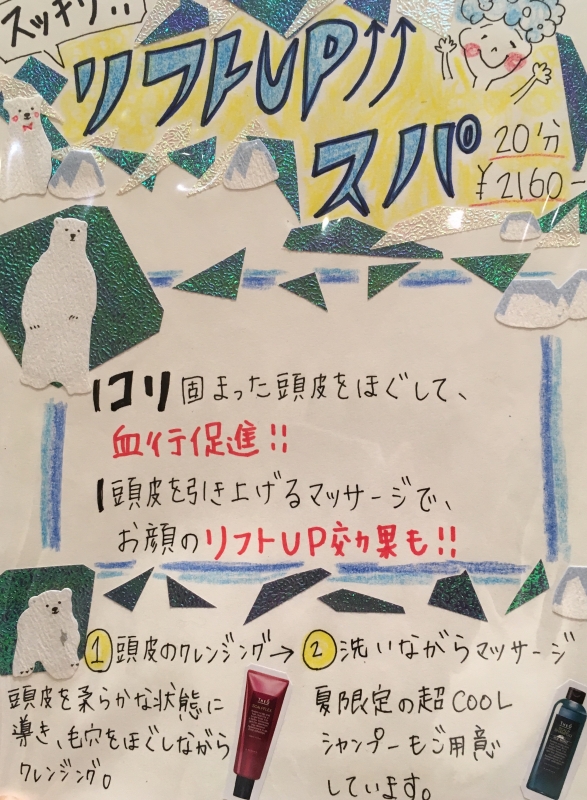 スッキリ!!
リフトUP↑↑
スパ
20分
¥2160-
コリ固まった頭皮をほぐして、
血行促進!!
頭皮を引き上げるマッサージで、
お顔のリフトUP効果も!!
①頭皮のクレンジング→
頭皮を柔らかな状態に
導き、毛穴をほぐしながら
クレンジング。
②洗いながらマッサージ
夏限定の超COOL
シャンプーもご用意
しています。